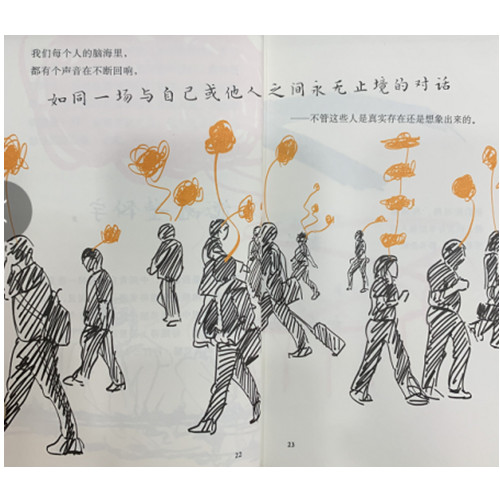 我们每个人的脑海里，
都有个声音在不断回响，
如同一场与自己或他人之间永无止境的对话
——不管这些人是真实存在还是想象出来的。
22
23